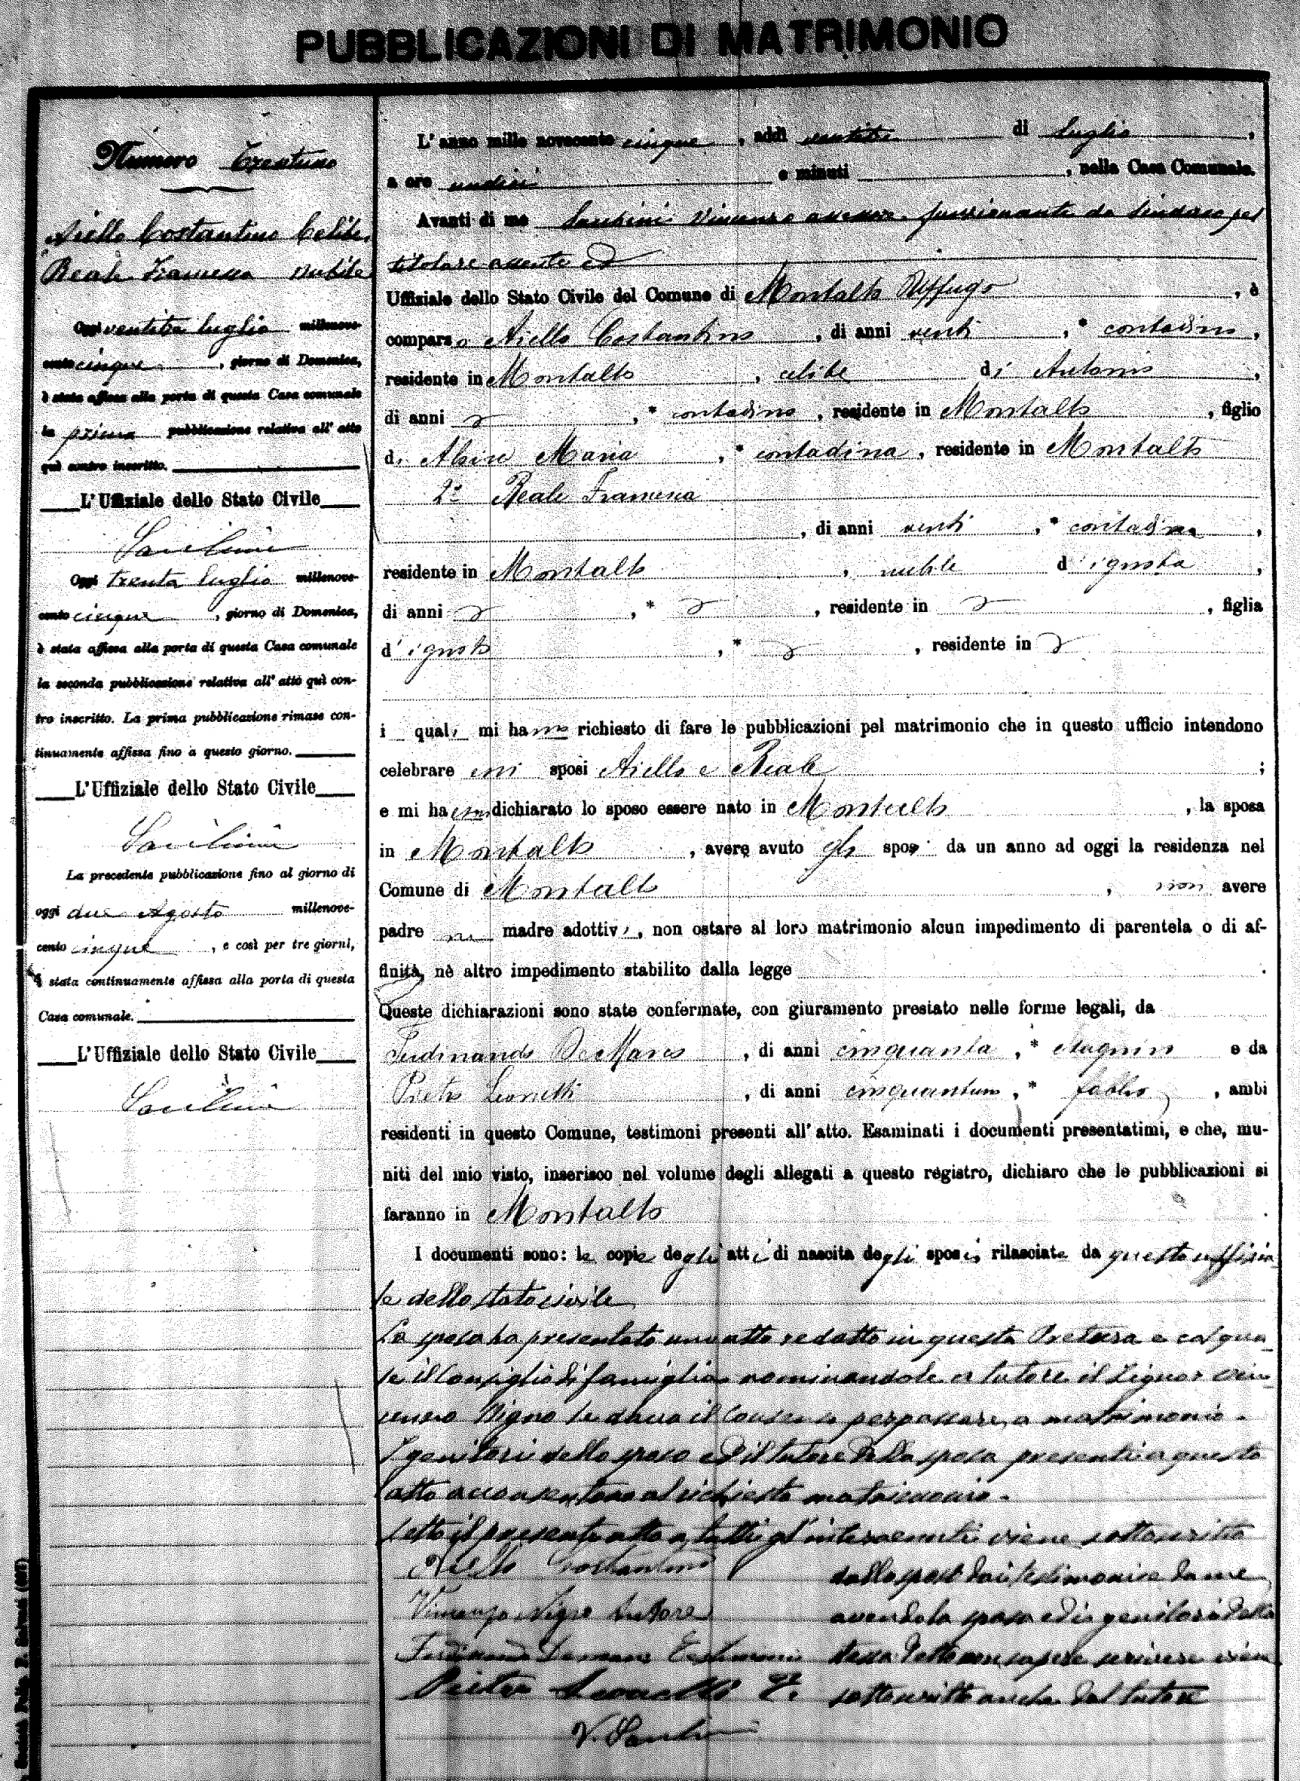 PUBBLICAZIONI DI MATRIMONIO
Numero Trentuno
Aiello Costantino Celibe
Reale Francesca nubile
Oggi ventitre luglio millenove-
cento cinque, giorno di Domenica,
è stata affissa alla porta di questa Casa comunale
la prima pubblicazione relativa all' atto
quì contro inscritto.
L'Uffiziale dello Stato Civile
Oggi trenta luglio millenove-
cento cinque, giorno di Domenica,
è stata affissa alla porta di questa Casa comunale
la seconda pubblicazione relativa all' atto quì con-
tro inscritto. La prima pubblicazione rimase con-
tinuamente affissa fino a questo giorno.
L'Uffiziale dello Stato Civile
La precedente pubblicazione fino al giorno di
oggi due Agosto millenove-
cento cinque, e così per tre giorni,
è stata continuamente affissa alla porta di questa
Casa comunale.
L'Uffiziale dello Stato Civile
L'anno mille novecento cinque, addì ventitre di luglio,
a ore undici e minuti , nella Casa Comunale.
Avanti di me Vincenzo assessore funzionante da Sindaco pel
titolare assente ed
Uffiziale dello Stato Civile del Comune di Montalto Uffugo, è
comparso Aiello Costantino, di anni venti, * contadino,
residente in Montalto, celibe di Antonio,
di anni , * contadino, residente in Montalto, figlio
di Maria, * contadina, residente in Montalto
2° Reale Francesca
, di anni venti, * contadina,
residente in Montalto, nubile d'ignota,
di anni , * , residente in , figlia
d'ignoto, * , residente in
i quali mi hanno richiesto di fare le pubblicazioni pel matrimonio che in questo ufficio intendono
celebrare essi sposi Aiello e Reale;
e mi hanno dichiarato lo sposo essere nato in Montalto, la sposa
in Montalto, avere avuto gli sposi da un anno ad oggi la residenza nel
Comune di Montalto, non avere
padre nè madre adottivi, non ostare al loro matrimonio alcun impedimento di parentela o di af-
finità, nè altro impedimento stabilito dalla legge.
Queste dichiarazioni sono state confermate, con giuramento prestato nelle forme legali, da
Ferdinando De Marco, di anni cinquanta, * e da
Pietro Leonetti, di anni cinquantuno, * , ambi
residenti in questo Comune, testimoni presenti all' atto. Esaminati i documenti presentatimi, e che, mu-
niti del mio visto, inserisco nel volume degli allegati a questo registro, dichiaro che le pubblicazioni si
faranno in Montalto
I documenti sono: le copie degli atti di nascita degli sposi, rilasciate da questo uffizia
le dello stato civile
La sposa ha presentato un atto redatto in questa Pretura e col qua
le il Consiglio di famiglia nominandole a tutore il Signor Vin
cenzo Nigro le dava il consenso per passare a matrimonio.
I genitori dello sposo ed il tutore della sposa presenti a questo
atto acconsentono al richiesto matrimonio.
Letto il presente atto a tutti gl'intervenuti viene sottoscritto
Aiello Costantino dallo sposo dai testimoni e da me
Vincenzo Nigro tutore avendo la sposa ed i genitori dello
Ferdinando Demarco Testimonio stesso detto non sapere scrivere viene
Pietro Leonetti T. sottoscritto anche dal tutore